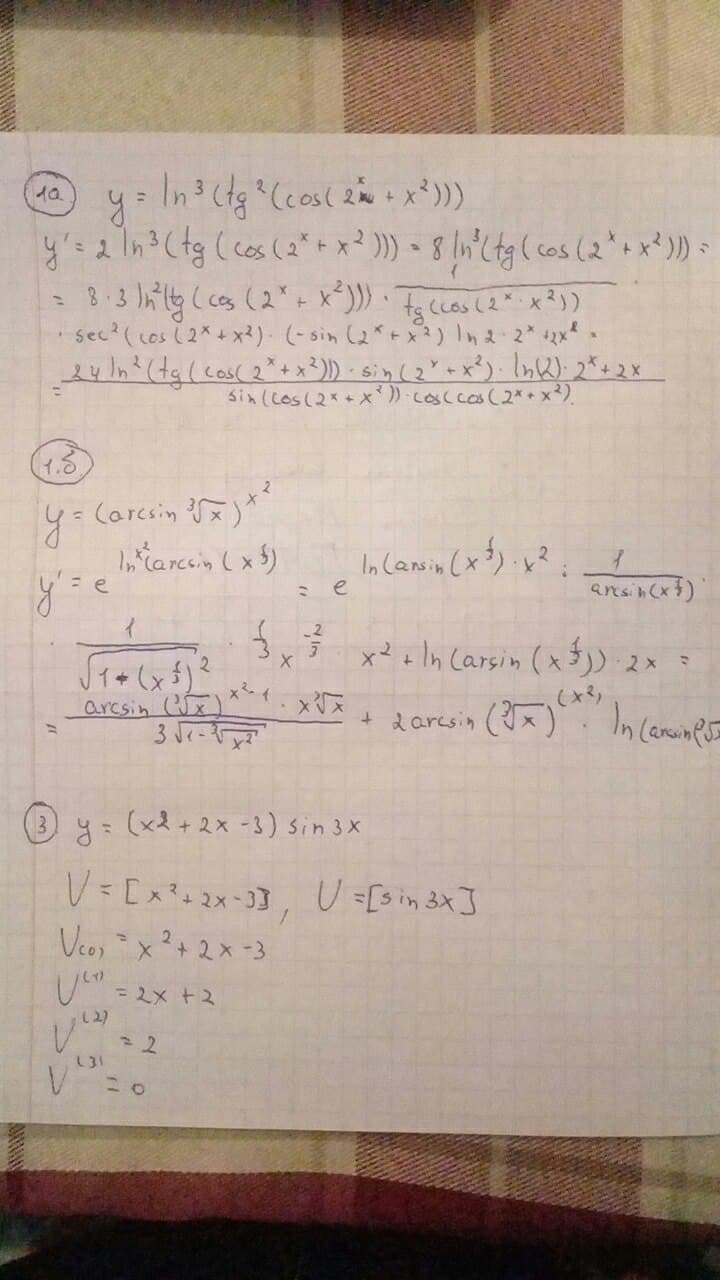 1а y = ln³(tg²(cos(2ˣ + x²)))
y' = 2 ln³(tg(cos(2ˣ + x²))) = 8 ln³(tg(cos(2ˣ + x²))) =
= 8·3 ln²(tg(cos(2ˣ + x²))) · 1/tg(cos(2ˣ · x²)) ·
· sec²(cos(2ˣ + x²) · (-sin(2ˣ + x²) ln 2 · 2ˣ + 2x =
= 24 ln²(tg(cos(2ˣ + x²))) · sin(2ˣ + x²) · ln(2) · 2ˣ + 2x / sin(cos(2ˣ + x²)) · cos(cos(2ˣ + x²).
1.б
y = (arcsin ∛x)^x²
y' = e^ln^x²(arcsin(x^⅓) = e^ln(arsin(x^⅓) · x² : 1/arcsin(x^⅓) ·
· 1/√1-(x^⅓)² · ⅓ x^-⅔ · x² + ln(arsin(x^⅓)) · 2x =
= arcsin(∛x)^x²-1 · x∛x / 3√1-∛x² + 2 arcsin(∛x)^(x²) · ln(arcsin(∛x
3 y = (x² + 2x - 3) sin 3x
V = [x² + 2x - 3], U = [sin 3x]
V(0) = x² + 2x - 3
V⁽¹⁾ = 2x + 2
V⁽²⁾ = 2
V⁽³⁾ = 0